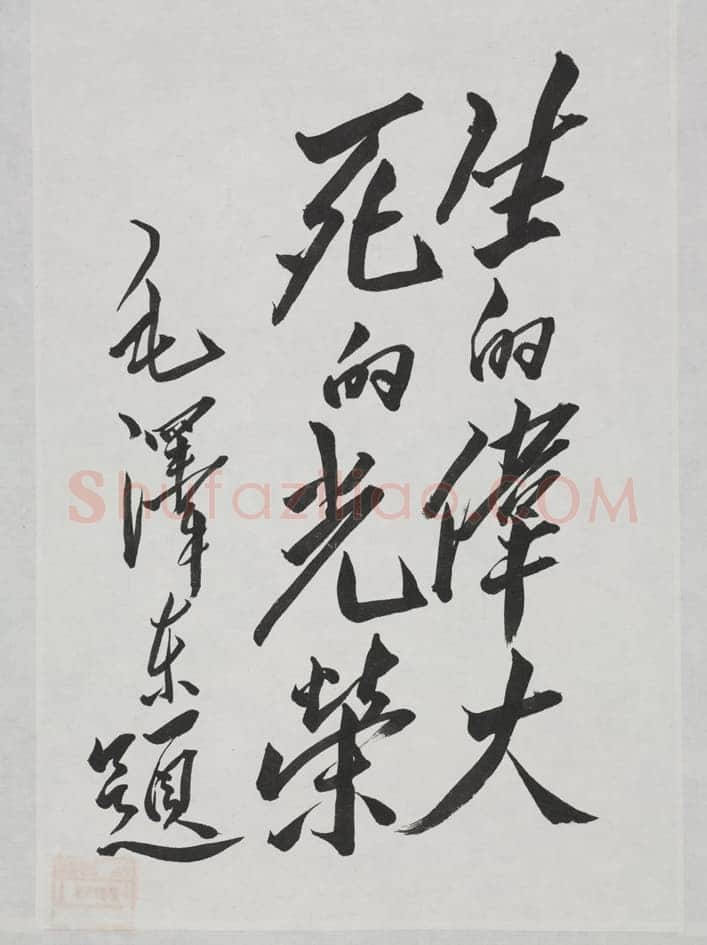 生的偉大
死的光榮
毛澤东題
Shufaziliao.COM